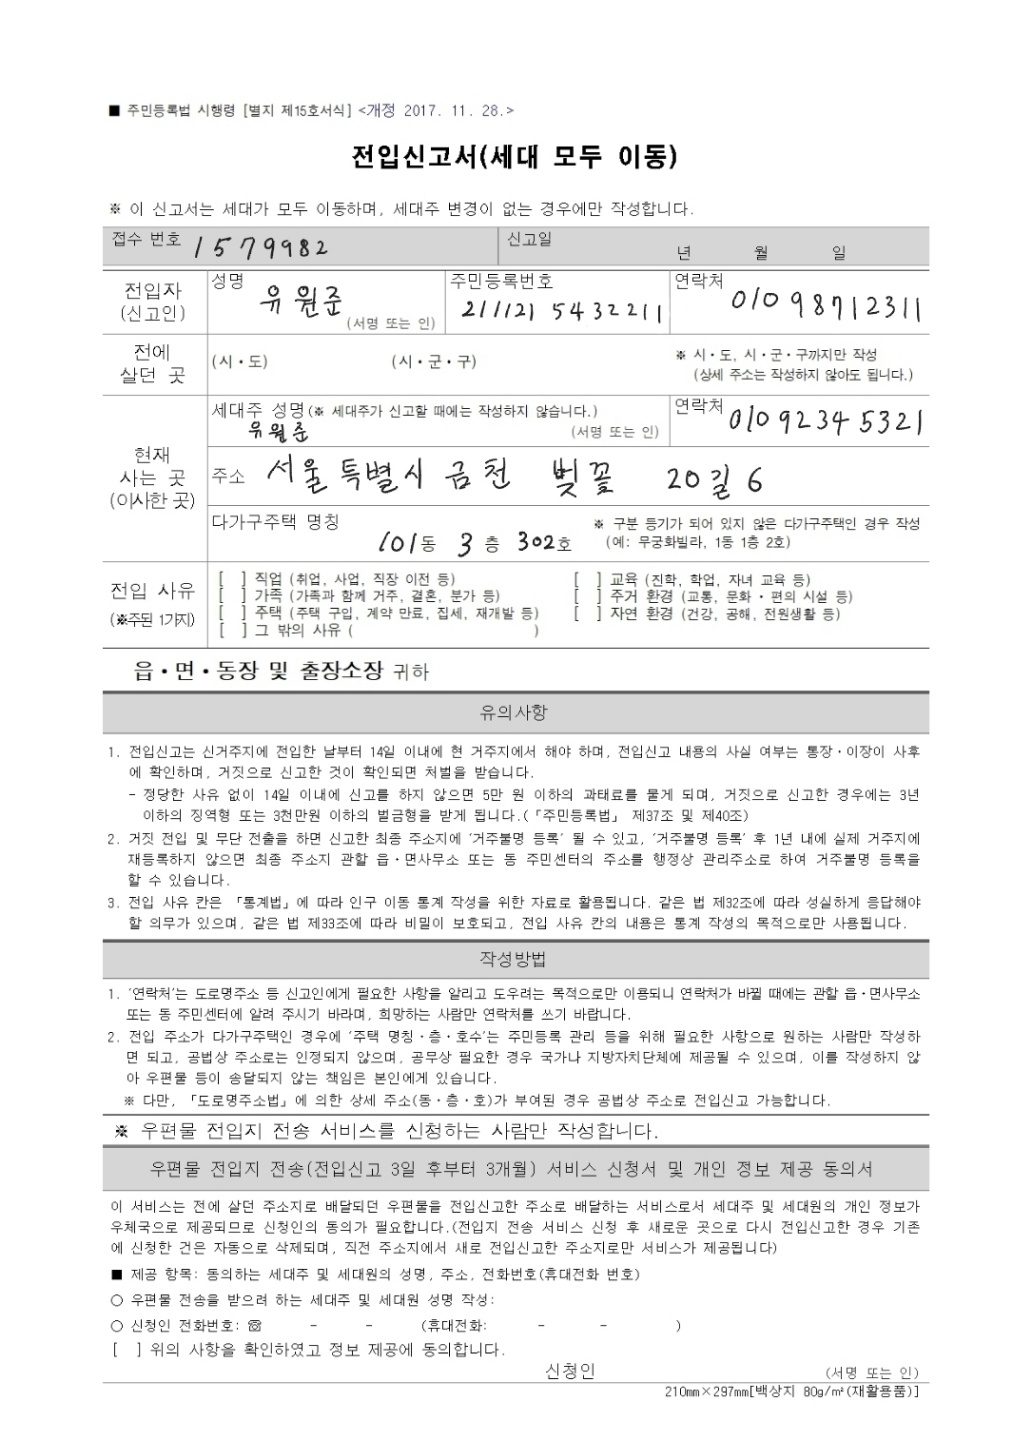 ■ 주민등록법 시행령 [별지 제15호서식] <개정 2017. 11. 28.>
전입신고서(세대 모두 이동)
※ 이 신고서는 세대가 모두 이동하며, 세대주 변경이 없는 경우에만 작성합니다.
접수 번호 1579982 신고일 년 월 일
전입자 (신고인) 성명 유원준 (서명 또는 인) 주민등록번호 211121 5432211 연락처 010 98712311
전에 살던 곳 (시·도) (시·군·구) ※ 시·도, 시·군·구까지만 작성
(상세 주소는 작성하지 않아도 됩니다.)
현재 사는 곳 (이사한 곳) 세대주 성명(※ 세대주가 신고할 때에는 작성하지 않습니다.) 연락처 010 9234 5321
유원준 (서명 또는 인)
주소 서울특별시 금천 벚꽃 20길 6
다가구주택 명칭 ※ 구분 등기가 되어 있지 않은 다가구주택인 경우 작성
101동 3층 302호 (예: 무궁화빌라, 1동 1층 2호)
전입 사유 (※주된 1가지)
[ ] 직업 (취업, 사업, 직장 이전 등) [ ] 교육 (진학, 학업, 자녀 교육 등)
[ ] 가족 (가족과 함께 거주, 결혼, 분가 등) [ ] 주거 환경 (교통, 문화·편의 시설 등)
[ ] 주택 (주택 구입, 계약 만료, 집세, 재개발 등) [ ] 자연 환경 (건강, 공해, 전원생활 등)
[ ] 그 밖의 사유 ( )
읍·면·동장 및 출장소장 귀하
유의사항
1. 전입신고는 신거주지에 전입한 날부터 14일 이내에 현 거주지에서 해야 하며, 전입신고 내용의 사실 여부는 통장·이장이 사후
에 확인하며, 거짓으로 신고한 것이 확인되면 처벌을 받습니다.
- 정당한 사유 없이 14일 이내에 신고를 하지 않으면 5만 원 이하의 과태료를 물게 되며, 거짓으로 신고한 경우에는 3년
이하의 징역형 또는 3천만원 이하의 벌금형을 받게 됩니다.(「주민등록법」 제37조 및 제40조)
2. 거짓 전입 및 무단 전출을 하면 신고한 최종 주소지에 '거주불명 등록' 될 수 있고, '거주불명 등록' 후 1년 내에 실제 거주지에
재등록하지 않으면 최종 주소지 관할 읍·면사무소 또는 동 주민센터의 주소를 행정상 관리주소로 하여 거주불명 등록을
할 수 있습니다.
3. 전입 사유 칸은 「통계법」에 따라 인구 이동 통계 작성을 위한 자료로 활용됩니다. 같은 법 제32조에 따라 성실하게 응답해야
할 의무가 있으며, 같은 법 제33조에 따라 비밀이 보호되고, 전입 사유 칸의 내용은 통계 작성의 목적으로만 사용됩니다.
작성방법
1. '연락처'는 도로명주소 등 신고인에게 필요한 사항을 알리고 도우려는 목적으로만 이용되니 연락처가 바뀔 때에는 관할 읍·면사무소
또는 동 주민센터에 알려 주시기 바라며, 희망하는 사람만 연락처를 쓰기 바랍니다.
2. 전입 주소가 다가구주택인 경우에 '주택 명칭·층·호수'는 주민등록 관리 등을 위해 필요한 사항으로 원하는 사람만 작성하
면 되고, 공법상 주소로는 인정되지 않으며, 공무상 필요한 경우 국가나 지방자치단체에 제공될 수 있으며, 이를 작성하지 않
아 우편물 등이 송달되지 않는 책임은 본인에게 있습니다.
※ 다만, 「도로명주소법」에 의한 상세 주소(동·층·호)가 부여된 경우 공법상 주소로 전입신고 가능합니다.
※ 우편물 전입지 전송 서비스를 신청하는 사람만 작성합니다.
우편물 전입지 전송(전입신고 3일 후부터 3개월) 서비스 신청서 및 개인 정보 제공 동의서
이 서비스는 전에 살던 주소지로 배달되던 우편물을 전입신고한 주소로 배달하는 서비스로서 세대주 및 세대원의 개인 정보가
우체국으로 제공되므로 신청인의 동의가 필요합니다.(전입지 전송 서비스 신청 후 새로운 곳으로 다시 전입신고한 경우 기존
에 신청한 건은 자동으로 삭제되며, 직전 주소지에서 새로 전입신고한 주소지로만 서비스가 제공됩니다)
■ 제공 항목: 동의하는 세대주 및 세대원의 성명, 주소, 전화번호(휴대전화 번호)
○ 우편물 전송을 받으려 하는 세대주 및 세대원 성명 작성:
○ 신청인 전화번호: ☏ - - (휴대전화: - - )
[ ] 위의 사항을 확인하였고 정보 제공에 동의합니다.
신청인 (서명 또는 인)
210㎜×297㎜[백상지 80g/㎡(재활용품)]